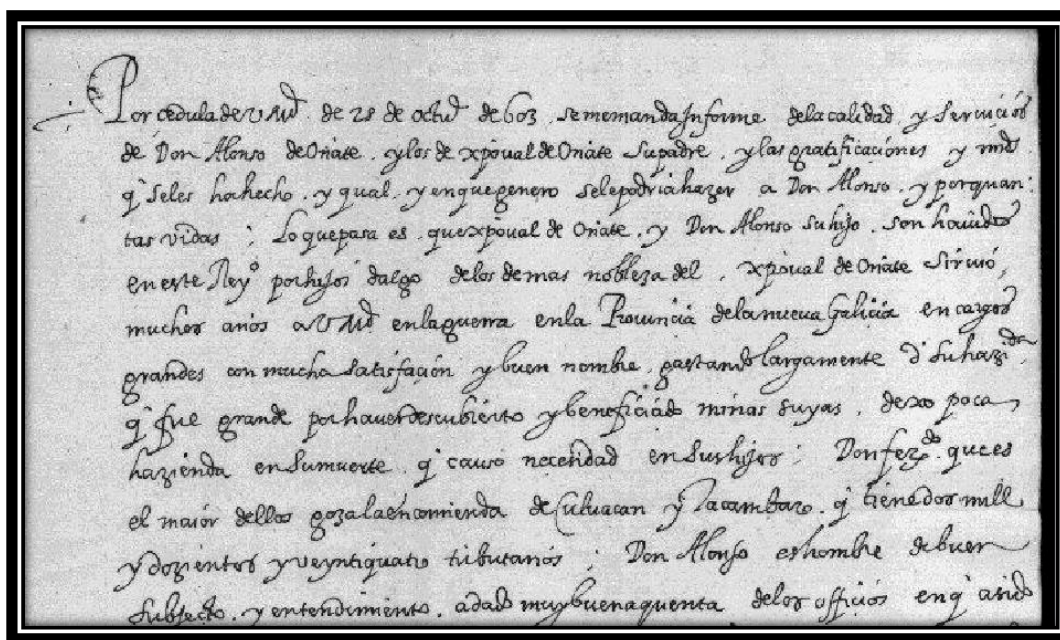 Por cedula de V Md de 28 de octu de 603 se me manda Informe de la calidad y servicios
de Don Alonso de Oñate y los de xpoual de Oñate su padre y las gratificaciones y mds
q se les ha hecho y qual y en que genero se le podria hazer a Don Alonso y por quan
tas vidas ; Lo que pasa es que xpoual de Oñate y Don Alonso su hijo son hauidos
en este Reyo por hijos dalgo de los de mas nobleza del xpoual de Oñate siruio,
muchos años a V Md en la guerra en la Prouincia de la nueua Galicia en cargos
grandes con mucha satisfacion y buen nombre gastando largamente d su hazda
q fue grande por hauer descubierto y beneficiado minas suyas dexo poca
hazienda en su muerte q causo necesidad en sus hijos ; Don ferdo que es
el maior dellos goza la encomienda de Culuacan y Tacambaro q tiene dos mill
y dozientos y veyntiquatro tributarios ; Don Alonso es hombre de buen
subjecto y entendimiento a dado muy buena quenta de los officios en q a sido